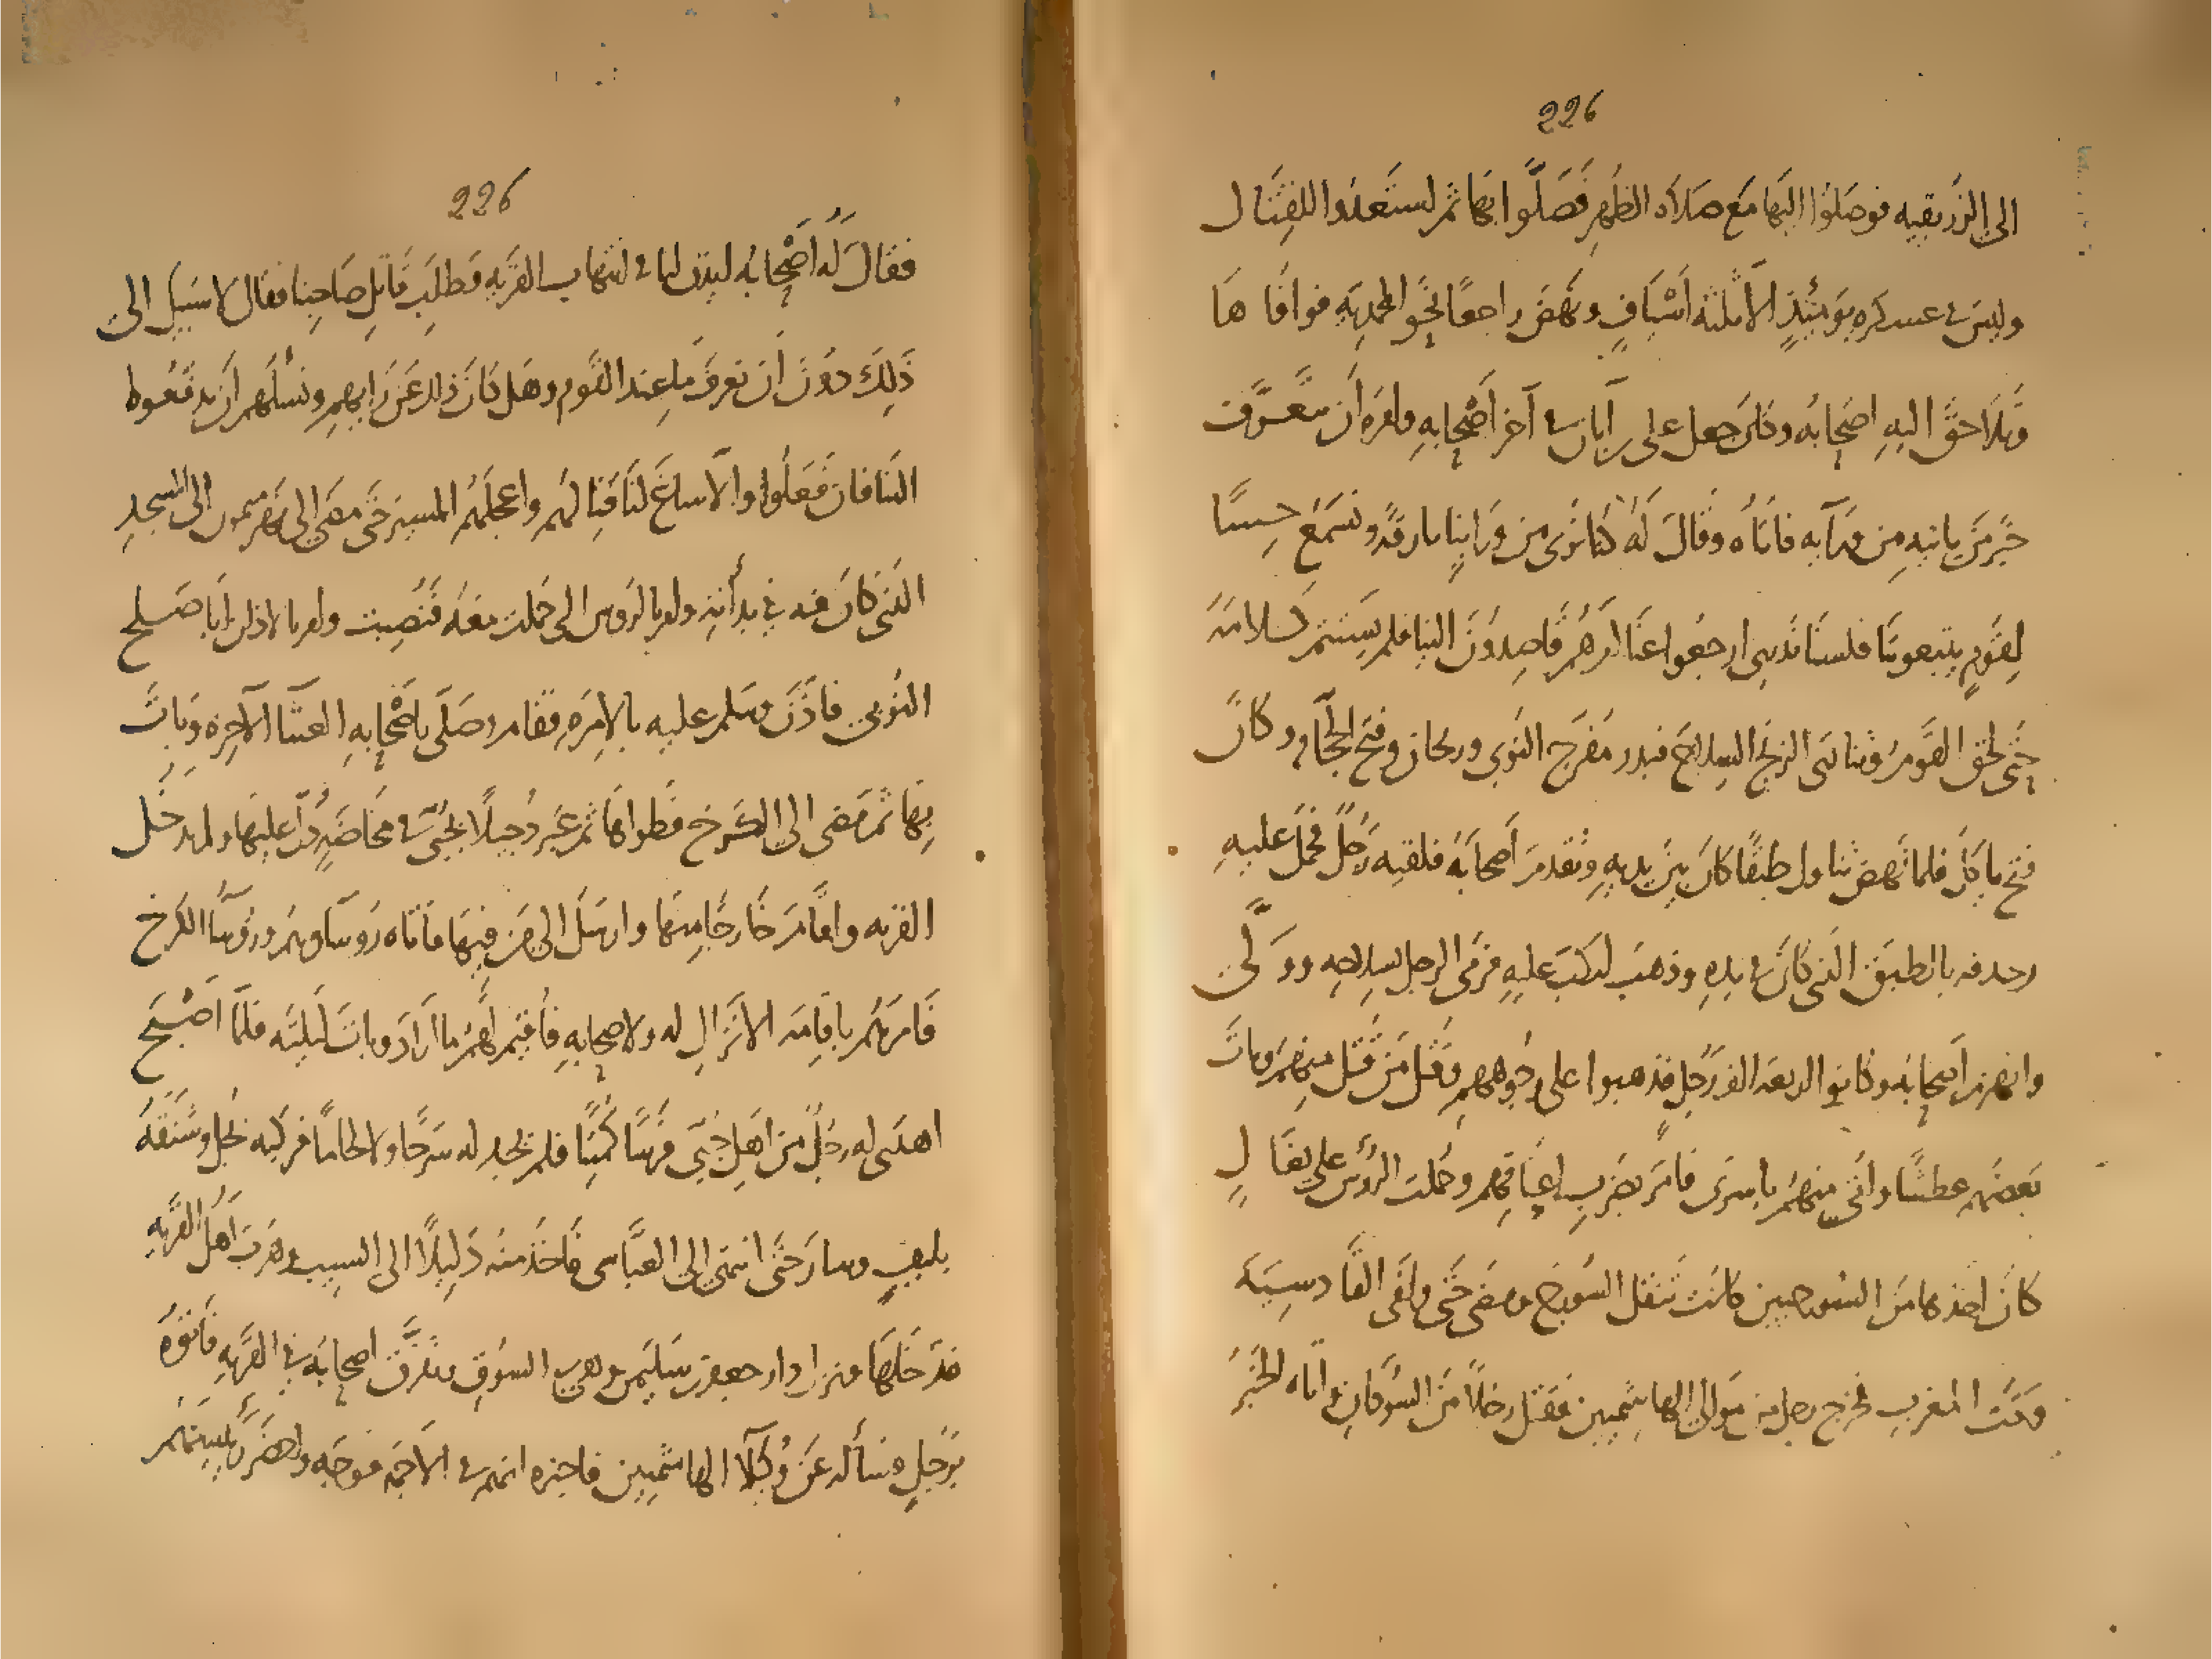 226
الى الزريقيه فوصلوا اليها مع صلاه الظهر فَصَلَّوا بها ثم استعدوا للقتال
وليس فى عسكره يومئذٍ الا ثلثه اسْيَافٍ ونهض راجعًا نحو المحمديه فوافا ها
وتلاحق اليه اصحابه وقد جعل على بن آبان فى آخر اصحابه وامره ان يتعرّف
خبر من ياتيه من ورآيه فاتاه وقال له كنا نرى من ورآينا بارقه ونسمع حِسًا
لقوم يتبعوننا فلسنا ندرى ارجعوا عنا ام هم قاصدون الينا فلم يستتم كلامه
حتى لحق القوم وتنادى الزنج السلاح فبدر مفرج النوبى وريحان وفتح الحجام وكان
فتح ياكل فلما نهض تناول طبقًا كان بين يديه وتقدم اصحابه فلقيه رجل فحمل عليه
وحدفه بالطبق الذى كان فى يده وذهب ليكب عليه فرمى الرجل بسلاحه وولّى
وانهزم اصحابه وكانوا اربعه الف رجل فذهبوا على وجوههم وقتل من قتل منهم ومات
بعضهم عطشا واتى منهم باسرى فامر بضرب اعناقهم وحملت الرؤس على بغال
كان اخذها من الشورجيين كانت تنقل الشورج ومضى حتى وافى القادسيه
وقت المغرب فخرج رجل من موالى الهاشميين فقتل رجلا من السودان واتاه الخبر
226
فقال له اصحابه ايذن لنا فى انتهاب القريه وطلب قاتل صاحبنا فقال لا سبيل الى
ذلك دون ان نعرف ما عند القوم وهل كان ذلك عن رايهم ونسلهم ان يدفعوه
الينا فان فعلوا والا ساغ لنا قتالهم واعجلهم المسير حتى مضى الى نهر ميمون الى المسجد
الذى كان فيه فى بدأته وامر بالروس التى حملت معه فنصبت وامر بالاذان ابا صلح
النوبى فاذن وسلم عليه بالامره فقام وصلى باصحابه العشآ الآخره وبات
بها ثم مضى الى الكرخ فطواها ثم عبر دجيلا بجبى فى مخاضه دل عليها ولم يدخل
القريه واقام خارجا منها وارسل الى من فيها فاتاه روسآوهم وروسآ الكرخ
فامرهم باقامه الانزال له ولاصحابه فاقيم لهم ما اراد وبات ليلته فلما اصبح
اهدى له رجل من اهل جبى فرسا كميتا فلم يجد له سرجا ولا لجاما فركبه بحبل وشنقه
بليفٍ وسار حتى انتهى الى العباسى فاخذ منه دليلا الى السيب وهرب اهل القريه
فدخلها ونزل دار جعفر بن سليمن وهى فى السوق وتفرق اصحابه فى القريه فاتوه
برجل فسأله عن وكلآ الهاشميين فاخبره انهم فى الاجمه فوجه